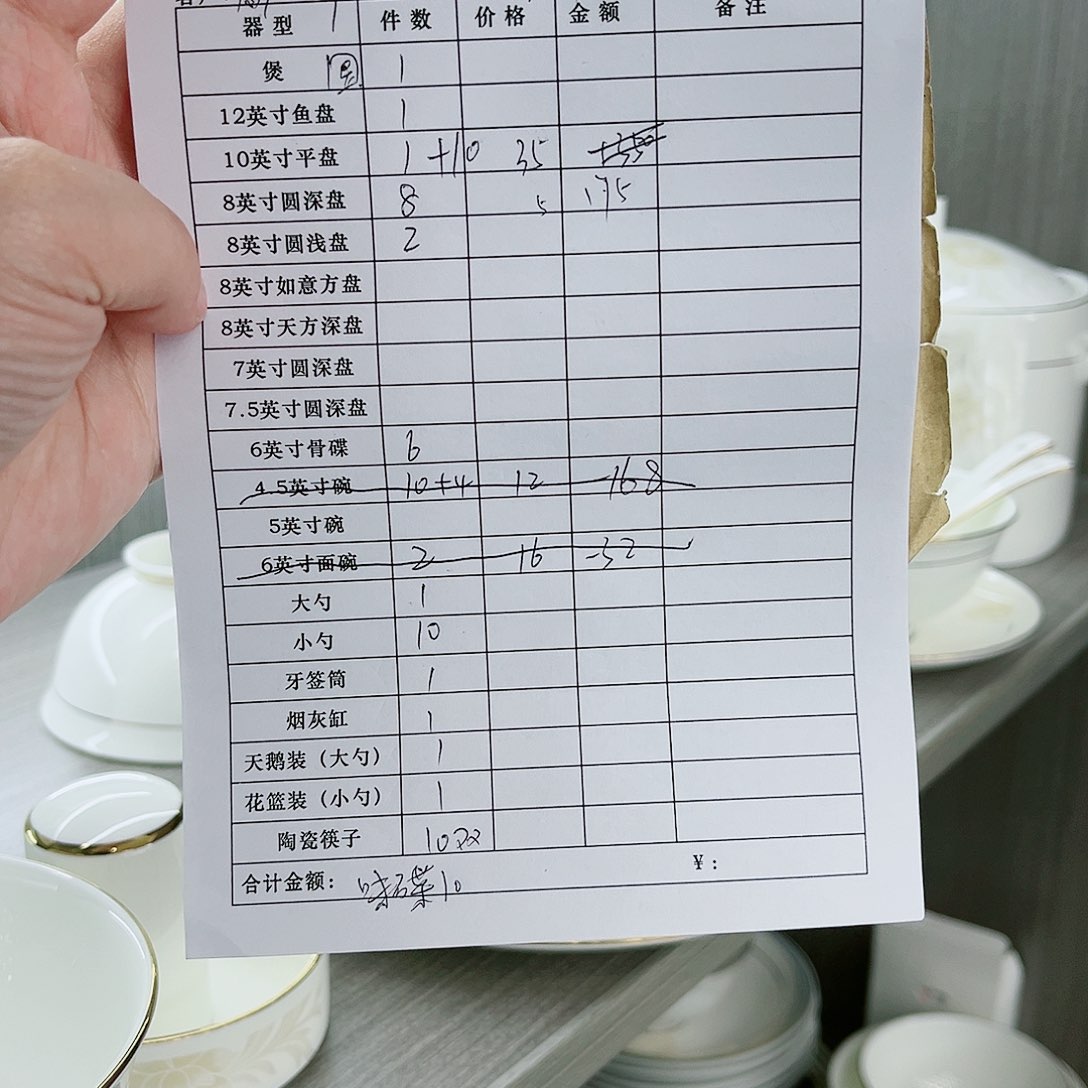 器型 件数 价格 金额 备注
煲 1
12英寸鱼盘 1
10英寸平盘 1+10 35
8英寸圆深盘 8 5 175
8英寸圆浅盘 2
8英寸如意方盘
8英寸天方深盘
7英寸圆深盘
7.5英寸圆深盘
6英寸骨碟 6
4.5英寸碗 10+4 12 168
5英寸碗
6英寸面碗 2 16 -32
大勺 1
小勺 10
牙签筒 1
烟灰缸 1
天鹅装（大勺） 1
花篮装（小勺） 1
陶瓷筷子 10双
合计金额： 味碟10 ¥：